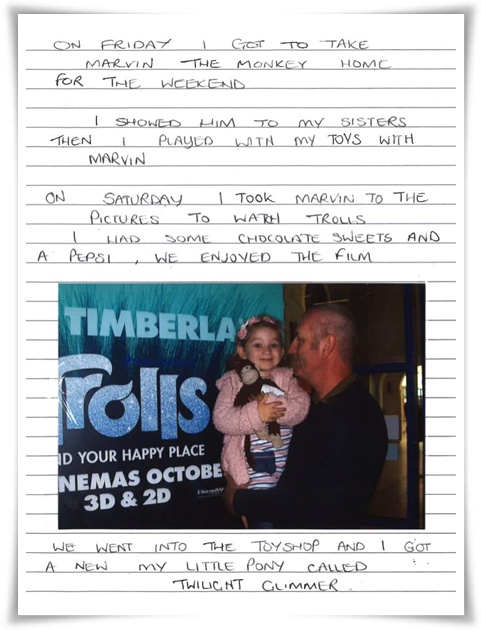 ON FRIDAY I GOT TO TAKE
MARVIN THE MONKEY HOME
FOR THE WEEKEND
I SHOWED HIM TO MY SISTERS
THEN I PLAYED WITH MY TOYS WITH
MARVIN
ON SATURDAY I TOOK MARVIN TO THE
PICTURES TO WATCH TROLLS
I HAD SOME CHOCOLATE SWEETS AND
A PEPSI, WE ENJOYED THE FILM
TIMBERLA
Trolls
ND YOUR HAPPY PLACE
NEMAS OCTOBE
3D & 2D
WE WENT INTO THE TOYSHOP AND I GOT
A NEW MY LITTLE PONY CALLED
TWILIGHT GLIMMER.